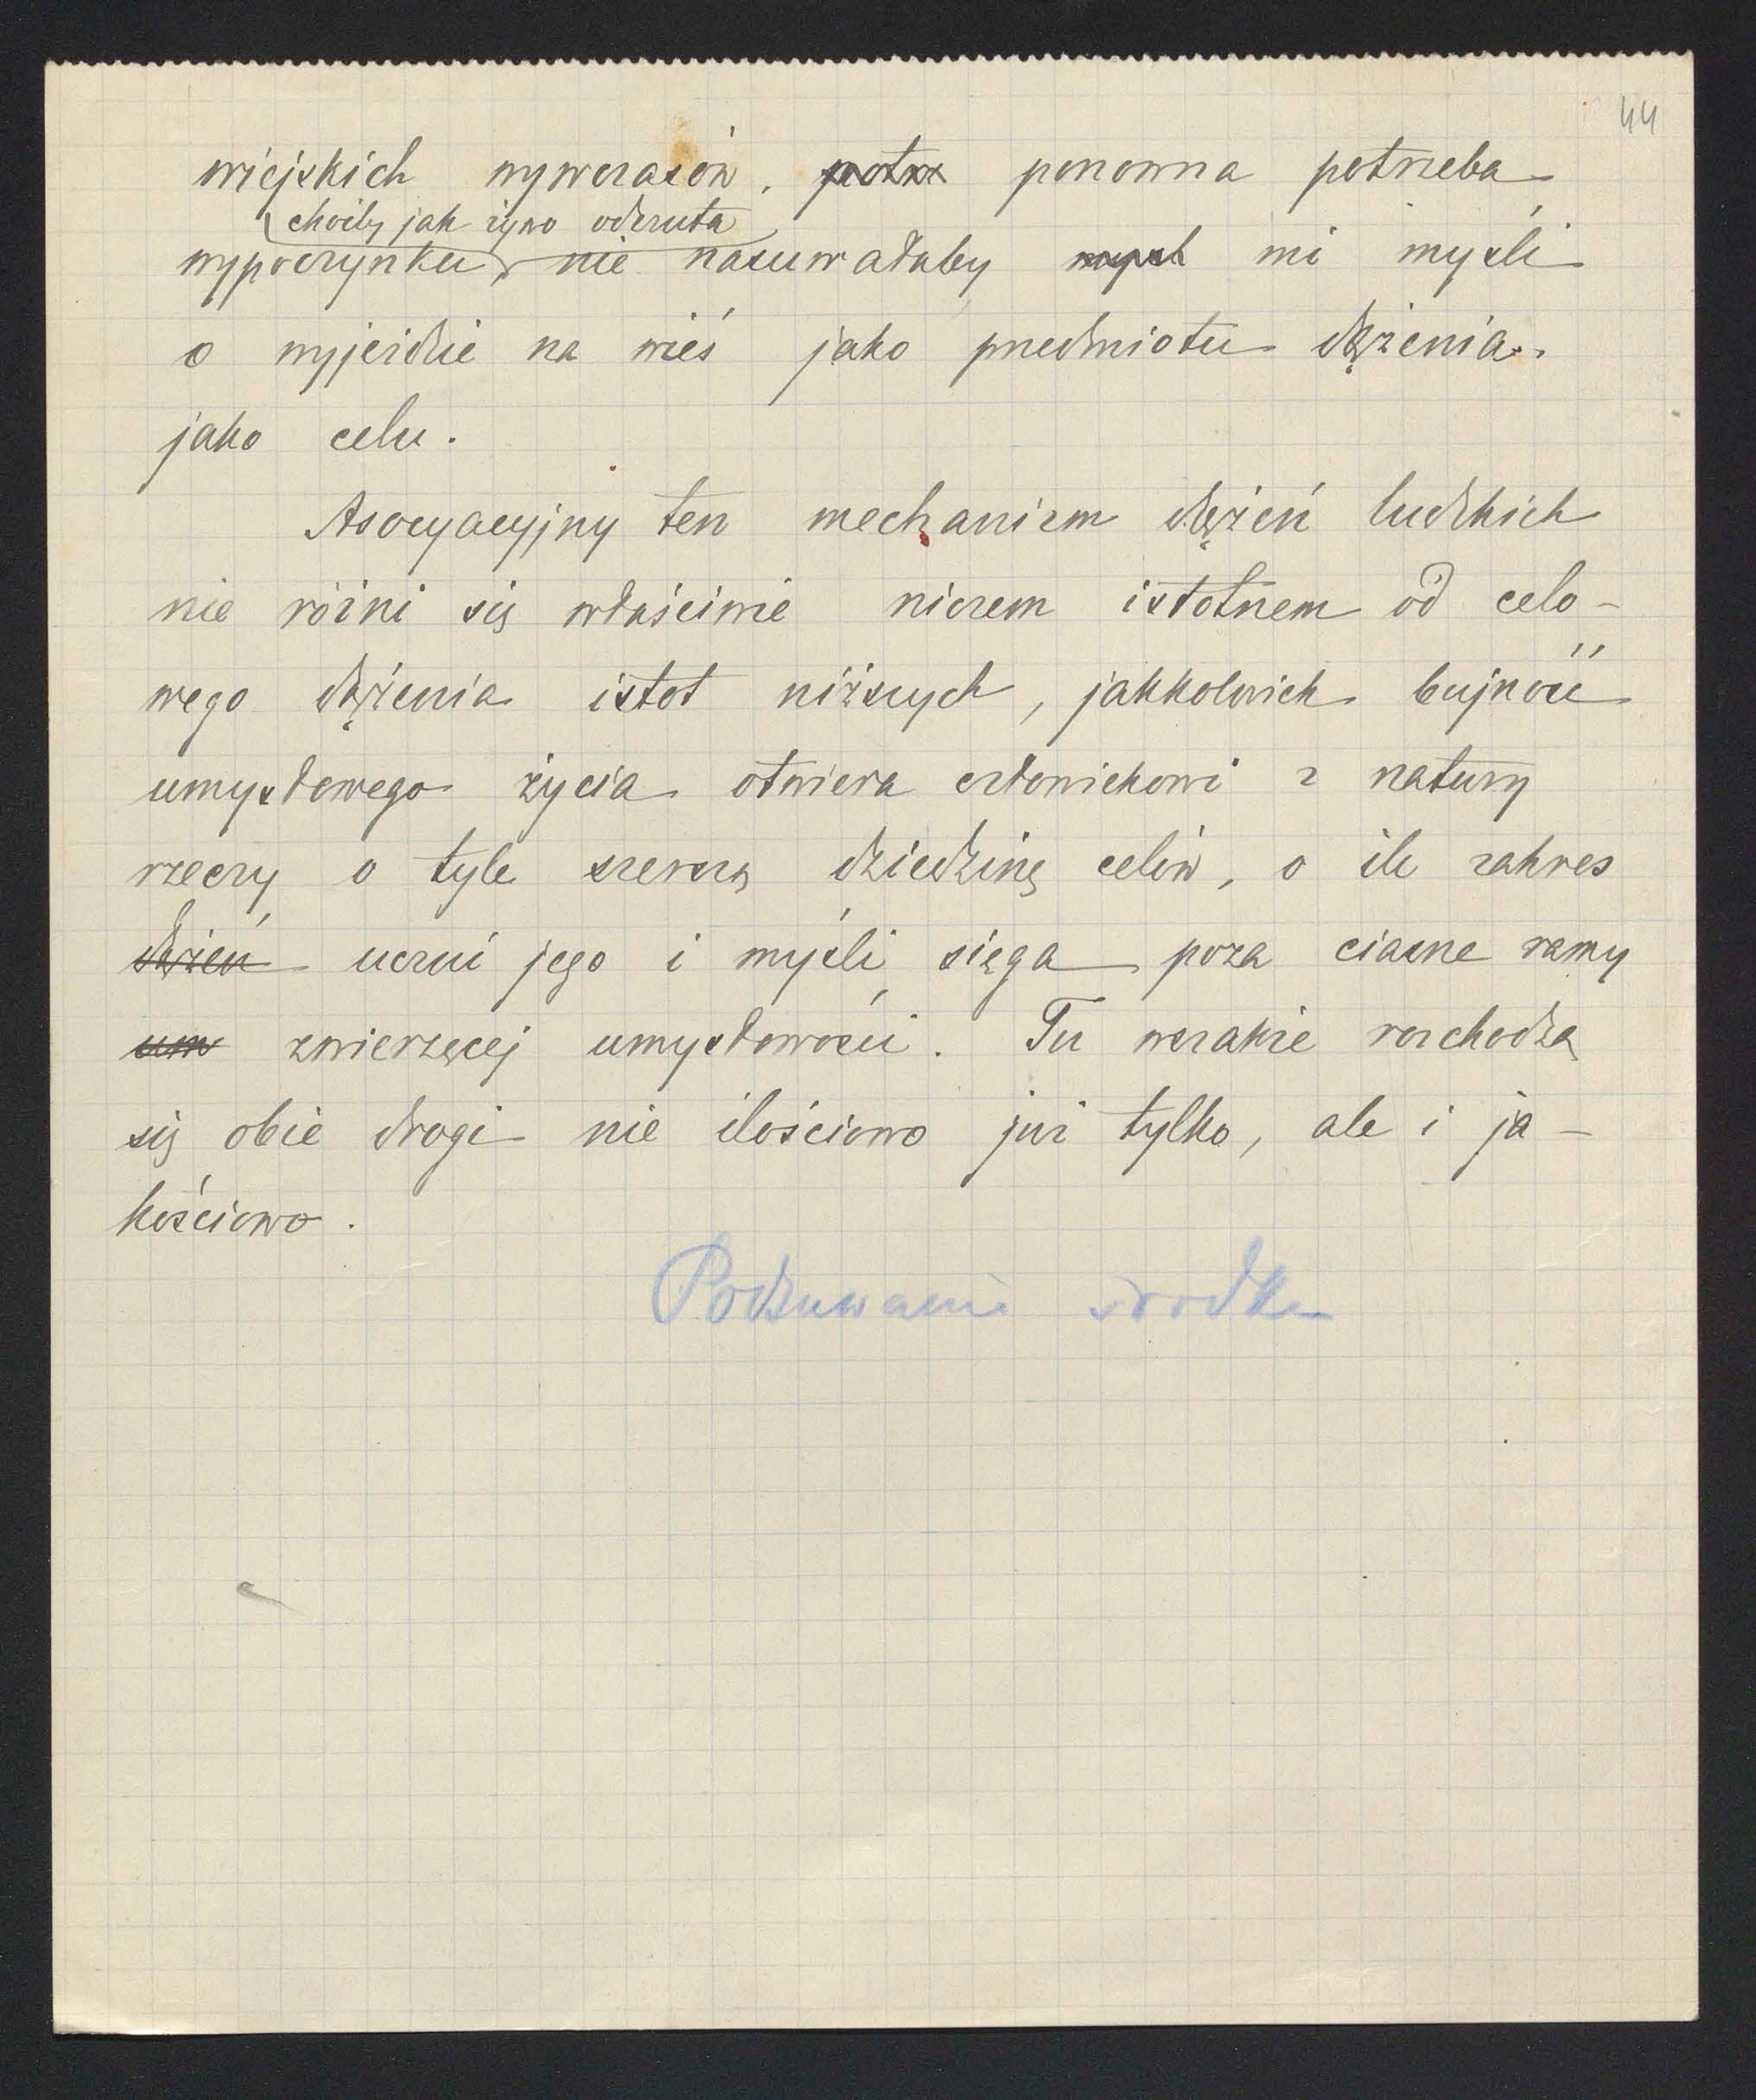 44
wiejskich wywczasów, potrz ponowna potrzeba
choćby jak żywo odczuta
wypoczynku, nie nasuwałaby mysl mi myśli
o wyjeździe na wieś jako przedmiotu dążenia,
jako celu.
Asocyacyjny ten mechanizm dążeń ludzkich
nie różni się właściwie niczem istotnem od celo-
wego dążenia istot niższych, jakkolwiek bujność
umysłowego życia otwiera człowiekowi z natury
rzeczy o tyle szerszą dziedzinę celów, o ile zakres
dążeń uczuć jego i myśli sięga poza ciasne ramy
um zwierzęcej umysłowości. Tu wszakże rozchodzą
się obie drogi nie ilościowo już tylko, ale i ja-
kościowo.
Podsuwanie środka